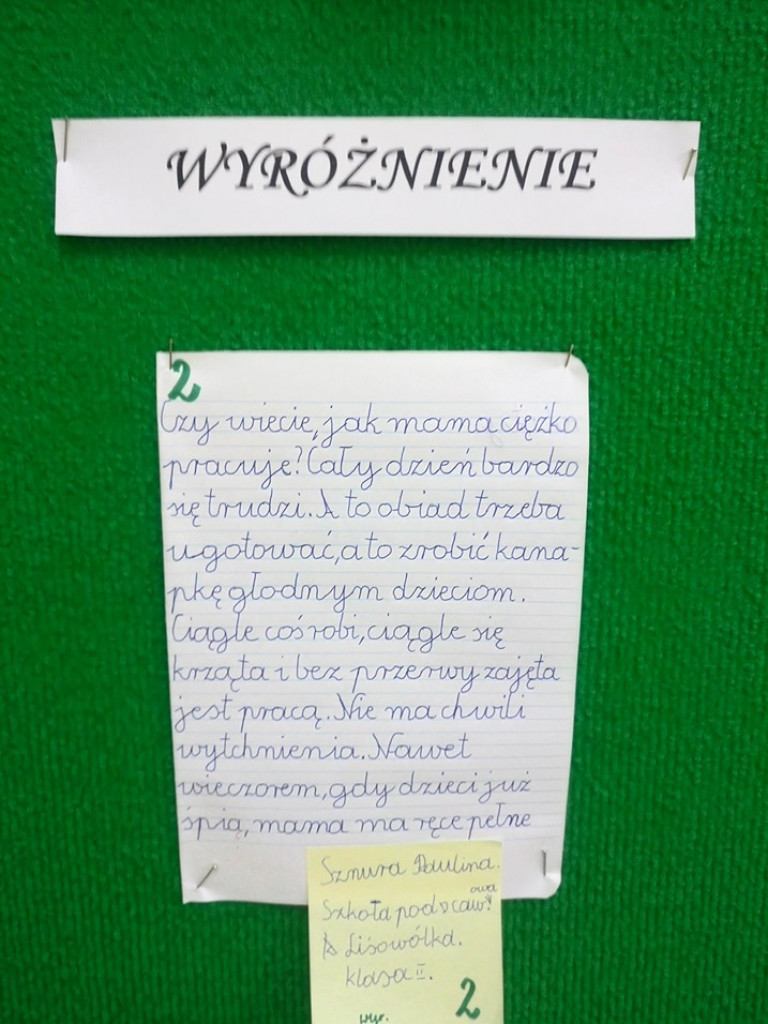 WYRÓŻNIENIE
2
Czy wiecie, jak mama ciężko
pracuje? Cały dzień bardzo
się trudzi. A to obiad trzeba
ugotować, a to zrobić kana-
pkę głodnym dzieciom.
Ciągle coś robi, ciągle się
krząta i bez przerwy zajęta
jest pracą. Nie ma chwili
wytchnienia. Nawet
wieczorem, gdy dzieci już
śpią, mama ma ręce pełne
Sznura Paulina.
owa
Szkoła
Lisowólka.
klasa II.
wyr. 2